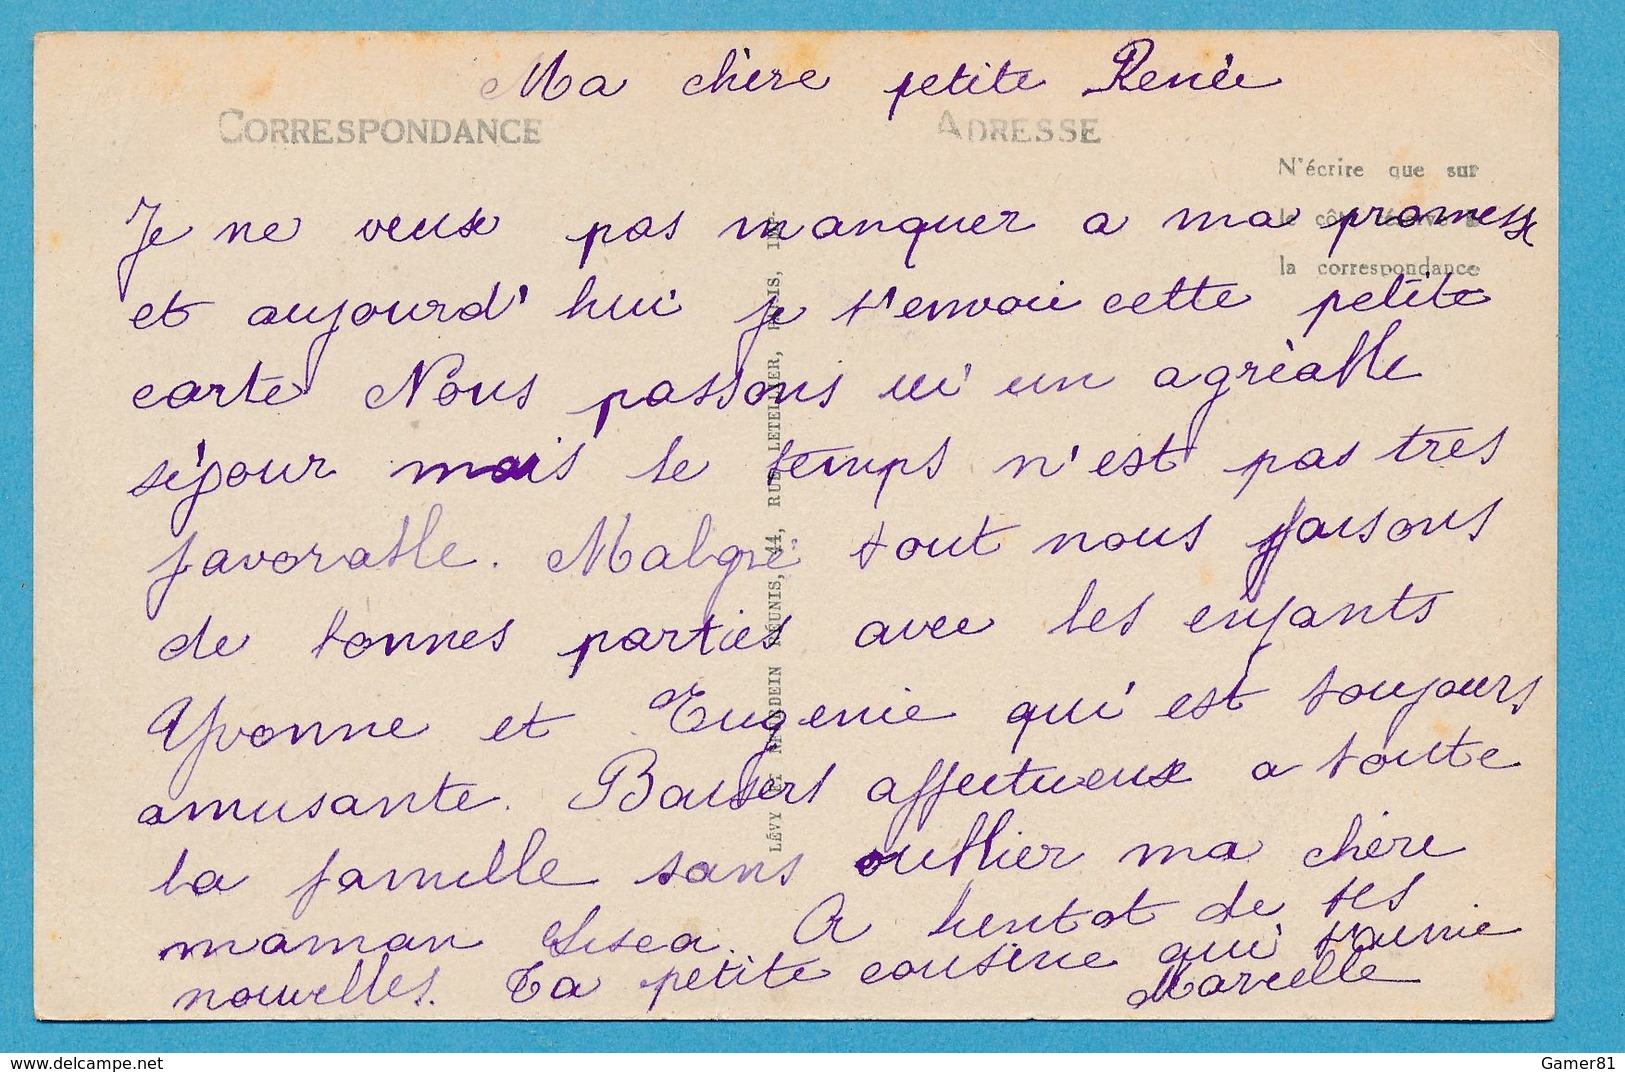 Ma chère petite Renée
CORRESPONDANCE
ADRESSE
N'écrire que sur
le côté réservé à
la correspondance
Je ne veux pas manquer a ma promesse
et aujourd'hui je t'envoie cette petite
carte Nous passons ici un agréable
séjour mais le temps n'est pas tres
favorable. Malgré tout nous faisons
de bonnes parties avec les enfants
Yvonne et Eugenie qui est toujours
amusante. Baisers affectueux a toute
la famille sans oublier ma chère
maman A bientot de tes
nouvelles. Ta petite cousine qui t'aime
Marcelle
LÉVY ET NEURDEIN RÉUNIS, 44, RUE LETELLIER, PARIS, IMP.
delcampe.net
Gamer81